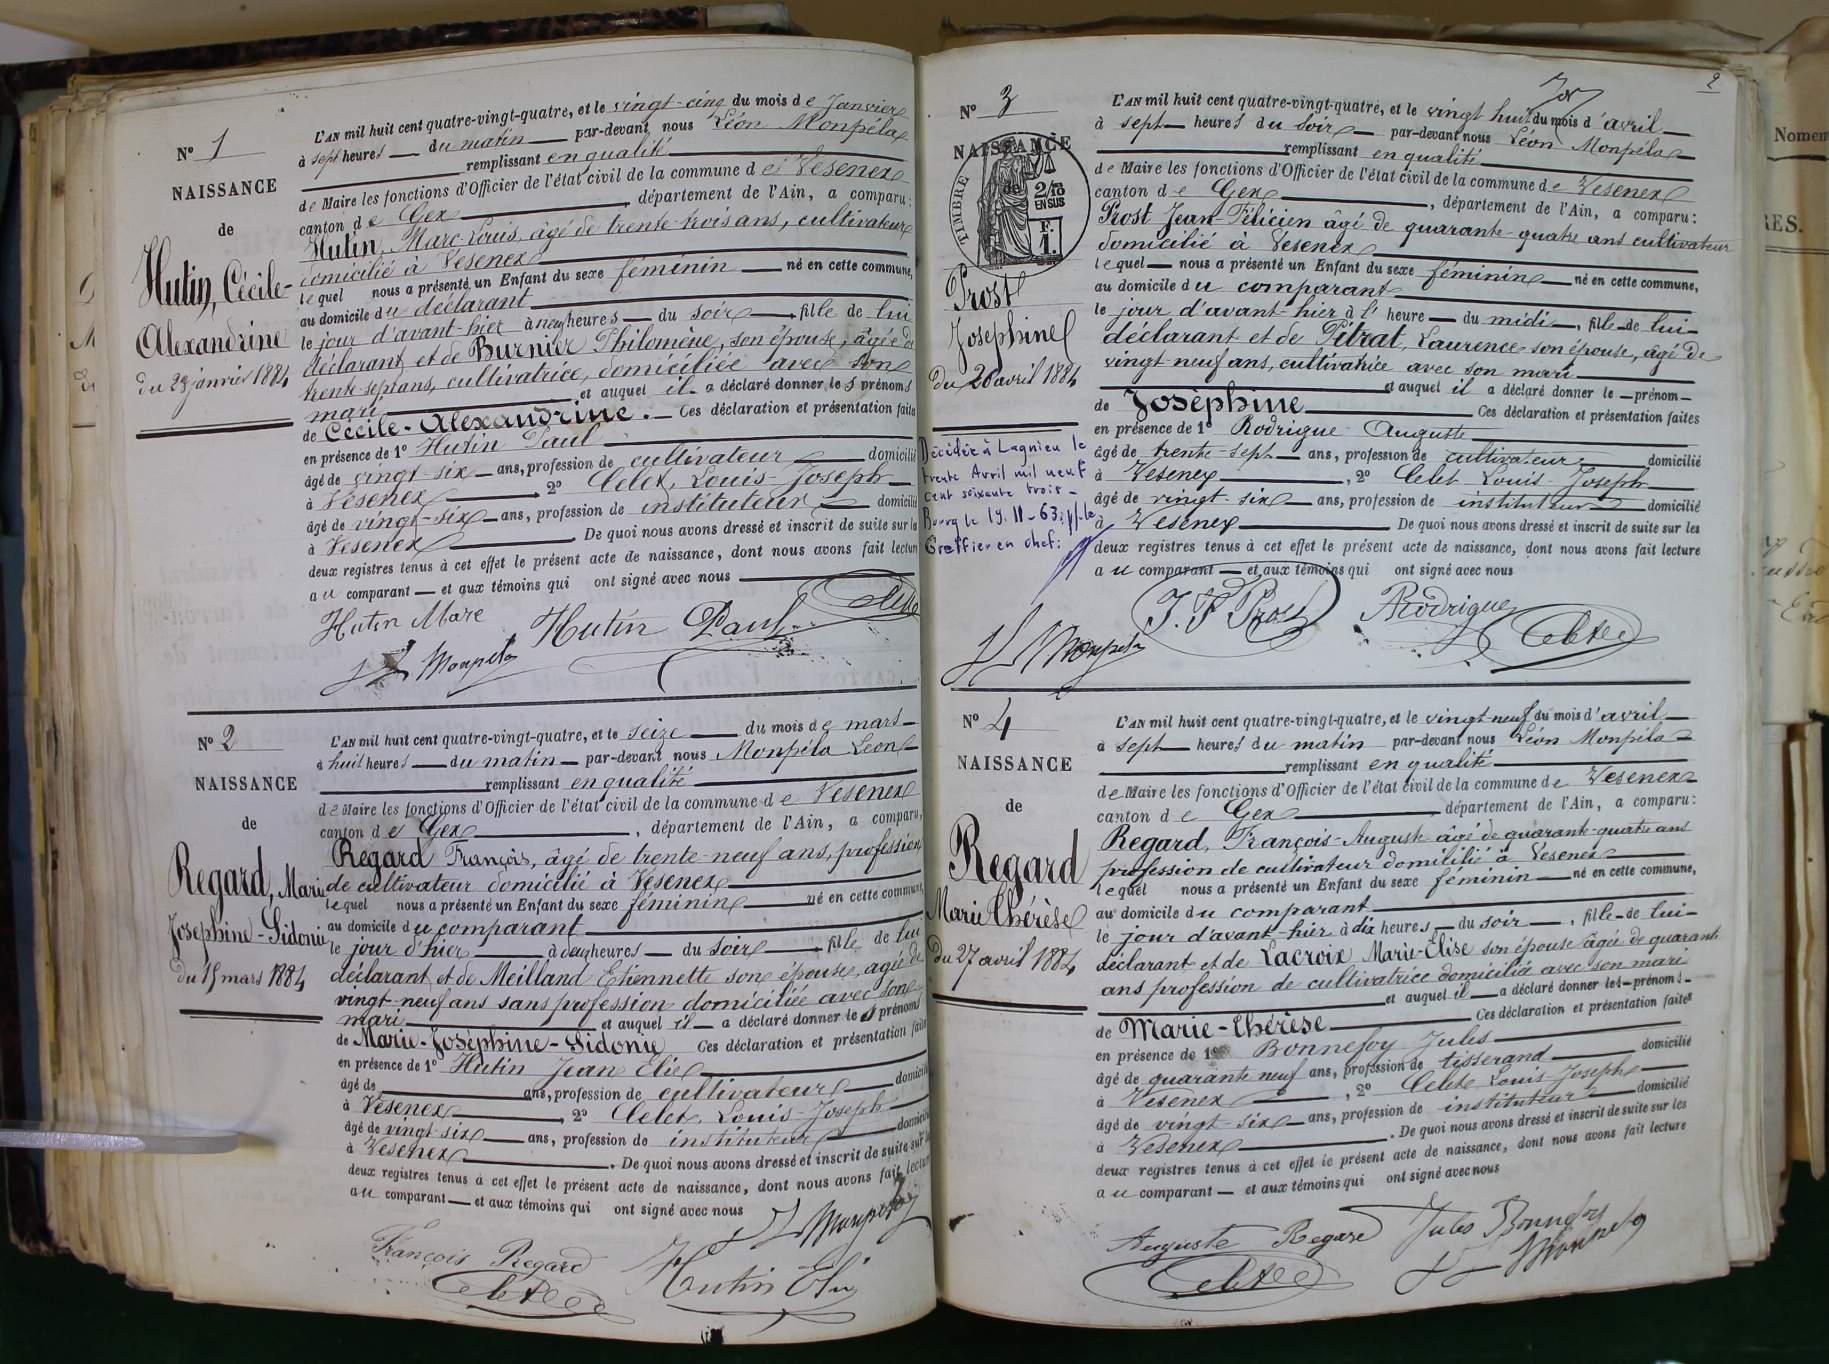 N° 1
NAISSANCE
de
Hutin, Cécile-
Alexandrine
du 23 janvier 1884
L'AN mil huit cent quatre-vingt-quatre, et le vingt-cinq du mois de Janvier
à sept heures du matin par-devant nous Léon Monpéla
remplissant en qualité
de Maire les fonctions d'Officier de l'état civil de la commune de Vesenex
canton de Gex, département de l'Ain, a comparu:
Hutin, Marc Louis, âgé de trente-trois ans, cultivateur
domicilié à Vesenex
lequel nous a présenté un Enfant du sexe féminin né en cette commune,
au domicile du déclarant
le jour d'avant-hier à neuf heures du soir, fille de lui
déclarant et de Burnier Philomène, son épouse, âgée de
trente sept ans, cultivatrice, domiciliée avec son
mari et auquel il a déclaré donner les prénoms
de Cécile-Alexandrine. Ces déclaration et présentation faites
en présence de 1° Hutin Paul
âgé de vingt-six ans, profession de cultivateur domicilié
à Vesenex, 2° Celet, Louis-Joseph
âgé de vingt-six ans, profession de instituteur domicilié
à Vesenex. De quoi nous avons dressé et inscrit de suite sur les
deux registres tenus à cet effet le présent acte de naissance, dont nous avons fait lecture
au comparant et aux témoins qui ont signé avec nous
Hutin Marc Hutin Paul
L Monpéla
N° 2
NAISSANCE
de
Regard, Marie
Josephine-Sidonie
du 15 mars 1884
L'AN mil huit cent quatre-vingt-quatre, et le seize du mois de mars
à huit heures du matin par-devant nous Monpéla Leon
remplissant en qualité
de Maire les fonctions d'Officier de l'état civil de la commune de Vesenex
canton de Gex, département de l'Ain, a comparu,
Regard François, âgé de trente-neuf ans, profession
de cultivateur domicilié à Vesenex
lequel nous a présenté un Enfant du sexe féminin né en cette commune,
au domicile du comparant
le jour d'hier à heures du soir fille de lui
déclarant et de Meilland Etiennette son épouse, agée de
vingt-neuf ans sans profession domiciliée avec son
mari et auquel il a déclaré donner les prénoms
de Marie-Joséphine-Sidonie Ces déclaration et présentation faites
en présence de 1° Hutin Jean Elie
âgé de ans, profession de cultivateur domicilié
à Vesenex, 2° Celet, Louis-Joseph
âgé de vingt-six ans, profession de instituteur domicilié
à Vesenex. De quoi nous avons dressé et inscrit de suite sur les
deux registres tenus à cet effet le présent acte de naissance, dont nous avons fait lecture
au comparant et aux témoins qui ont signé avec nous
L Monpéla
François Regard Hutin Elie
2
N° 3
NAISSANCE
de
TIMBRE
2/10
EN SUS
F.
1.
Prost
Josephine
Du 26 avril 1884
Décédée à Lagnieu le
trente Avril mil neuf
cent soixante trois -
Bourg le 19.11-63: p/. le
Greffier en chef:
L'AN mil huit cent quatre-vingt-quatre, et le vingt huit du mois d'avril
à sept heures du soir par-devant nous Léon Monpéla
remplissant en qualité
de Maire les fonctions d'Officier de l'état civil de la commune de Vesenex
canton de Gex, département de l'Ain, a comparu:
Prost Jean Félicien âgé de quarante-quatre ans cultivateur
domicilié à Vesenex
lequel nous a présenté un Enfant du sexe féminin né en cette commune,
au domicile du comparant
le jour d'avant-hier à l' heure du midi, fille de lui
déclarant et de Pétrat, Laurence son épouse, âgé de
vingt neuf ans, cultivatrice avec son mari
et auquel il a déclaré donner le prénom
de Joséphine Ces déclaration et présentation faites
en présence de 1° Rodrigue Auguste
âgé de trente-sept ans, profession de cultivateur domicilié
à Vesenex, 2° Celet Louis-Joseph
âgé de vingt-six ans, profession de instituteur domicilié
à Vesenex De quoi nous avons dressé et inscrit de suite sur les
deux registres tenus à cet effet le présent acte de naissance, dont nous avons fait lecture
au comparant et aux témoins qui ont signé avec nous
J. F Prost ARodrigue
L Monpéla
N° 4
NAISSANCE
de
Regard
Marie Thérèse
du 27 avril 1884
L'AN mil huit cent quatre-vingt-quatre, et le vingt neuf du mois d'avril
à sept heures du matin par-devant nous Léon Monpéla
remplissant en qualité
de Maire les fonctions d'Officier de l'état civil de la commune de Vesenex
canton de Gex département de l'Ain, a comparu:
Regard, François-Auguste âgé de quarante-quatre ans
profession de cultivateur domicilié à Vesenex
lequel nous a présenté un Enfant du sexe féminin né en cette commune,
au domicile du comparant
le jour d'avant-hier à dix heures du soir, fille de lui
déclarant et de Lacroix Marie-Élise son épouse âgée de quarante
ans profession de cultivatrice domiciliée avec son mari
et auquel il a déclaré donner les prénoms
de Marie-Thérèse Ces déclaration et présentation faites
en présence de 1° Bonnefoy Jules
âgé de quarante neuf ans, profession de tisserand domicilié
à Vesenex, 2° Celet Louis-Joseph
âgé de vingt-six ans, profession de instituteur domicilié
à Vesenex. De quoi nous avons dressé et inscrit de suite sur les
deux registres tenus à cet effet le présent acte de naissance, dont nous avons fait lecture
au comparant et aux témoins qui ont signé avec nous
Auguste Regard Jules Bonnefoy
L Monpéla
Nomen
RES.